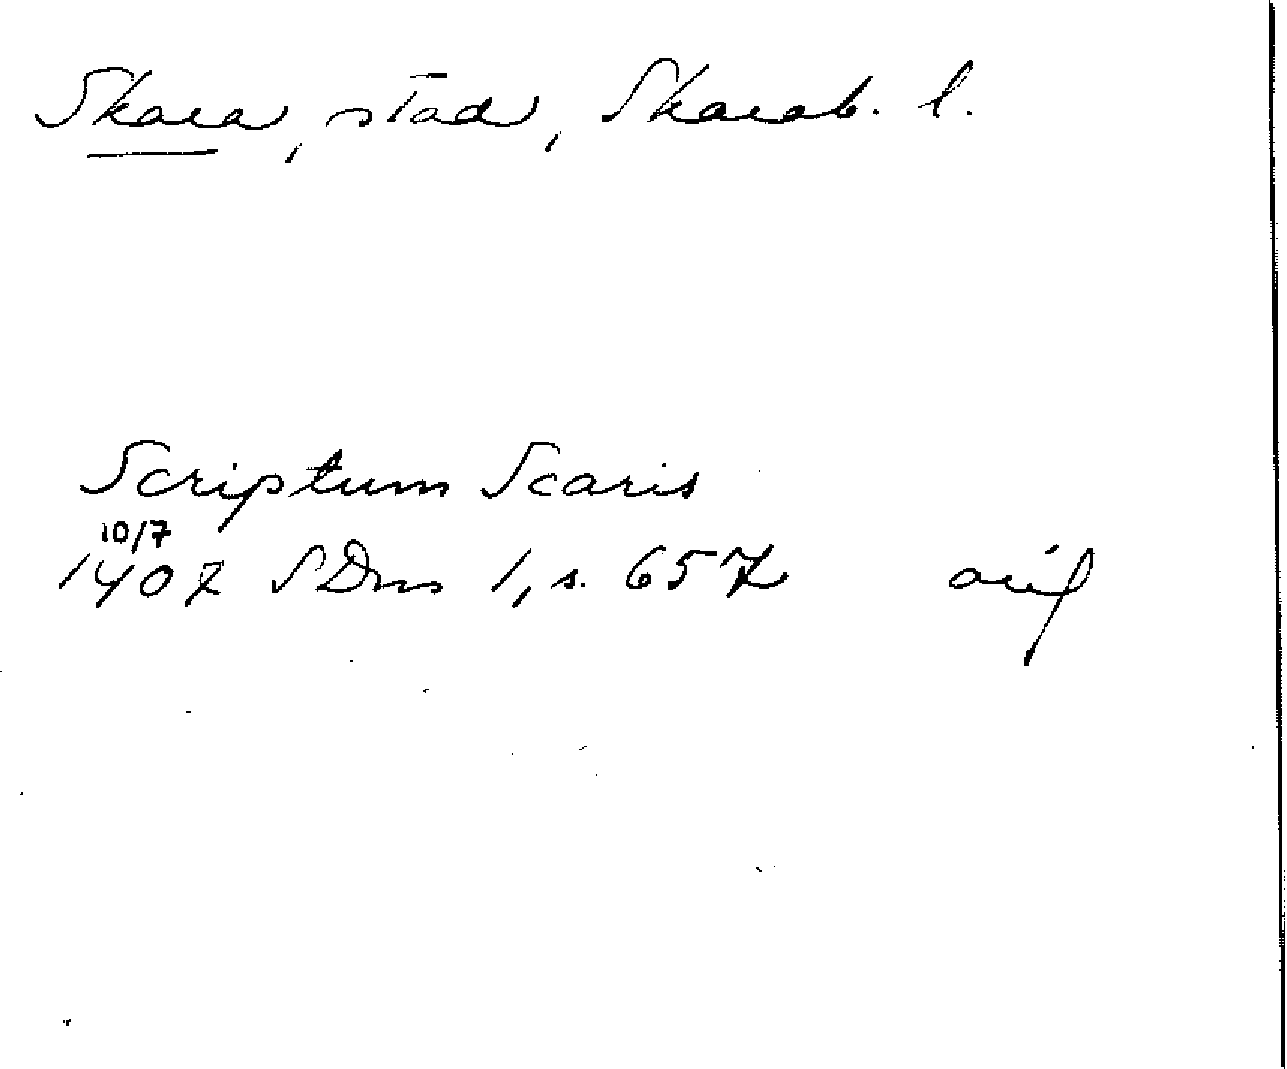 Skara, stad, Skarab. l.
Scriptum Scaris
10/7
1407 SDns 1, s. 657 orig